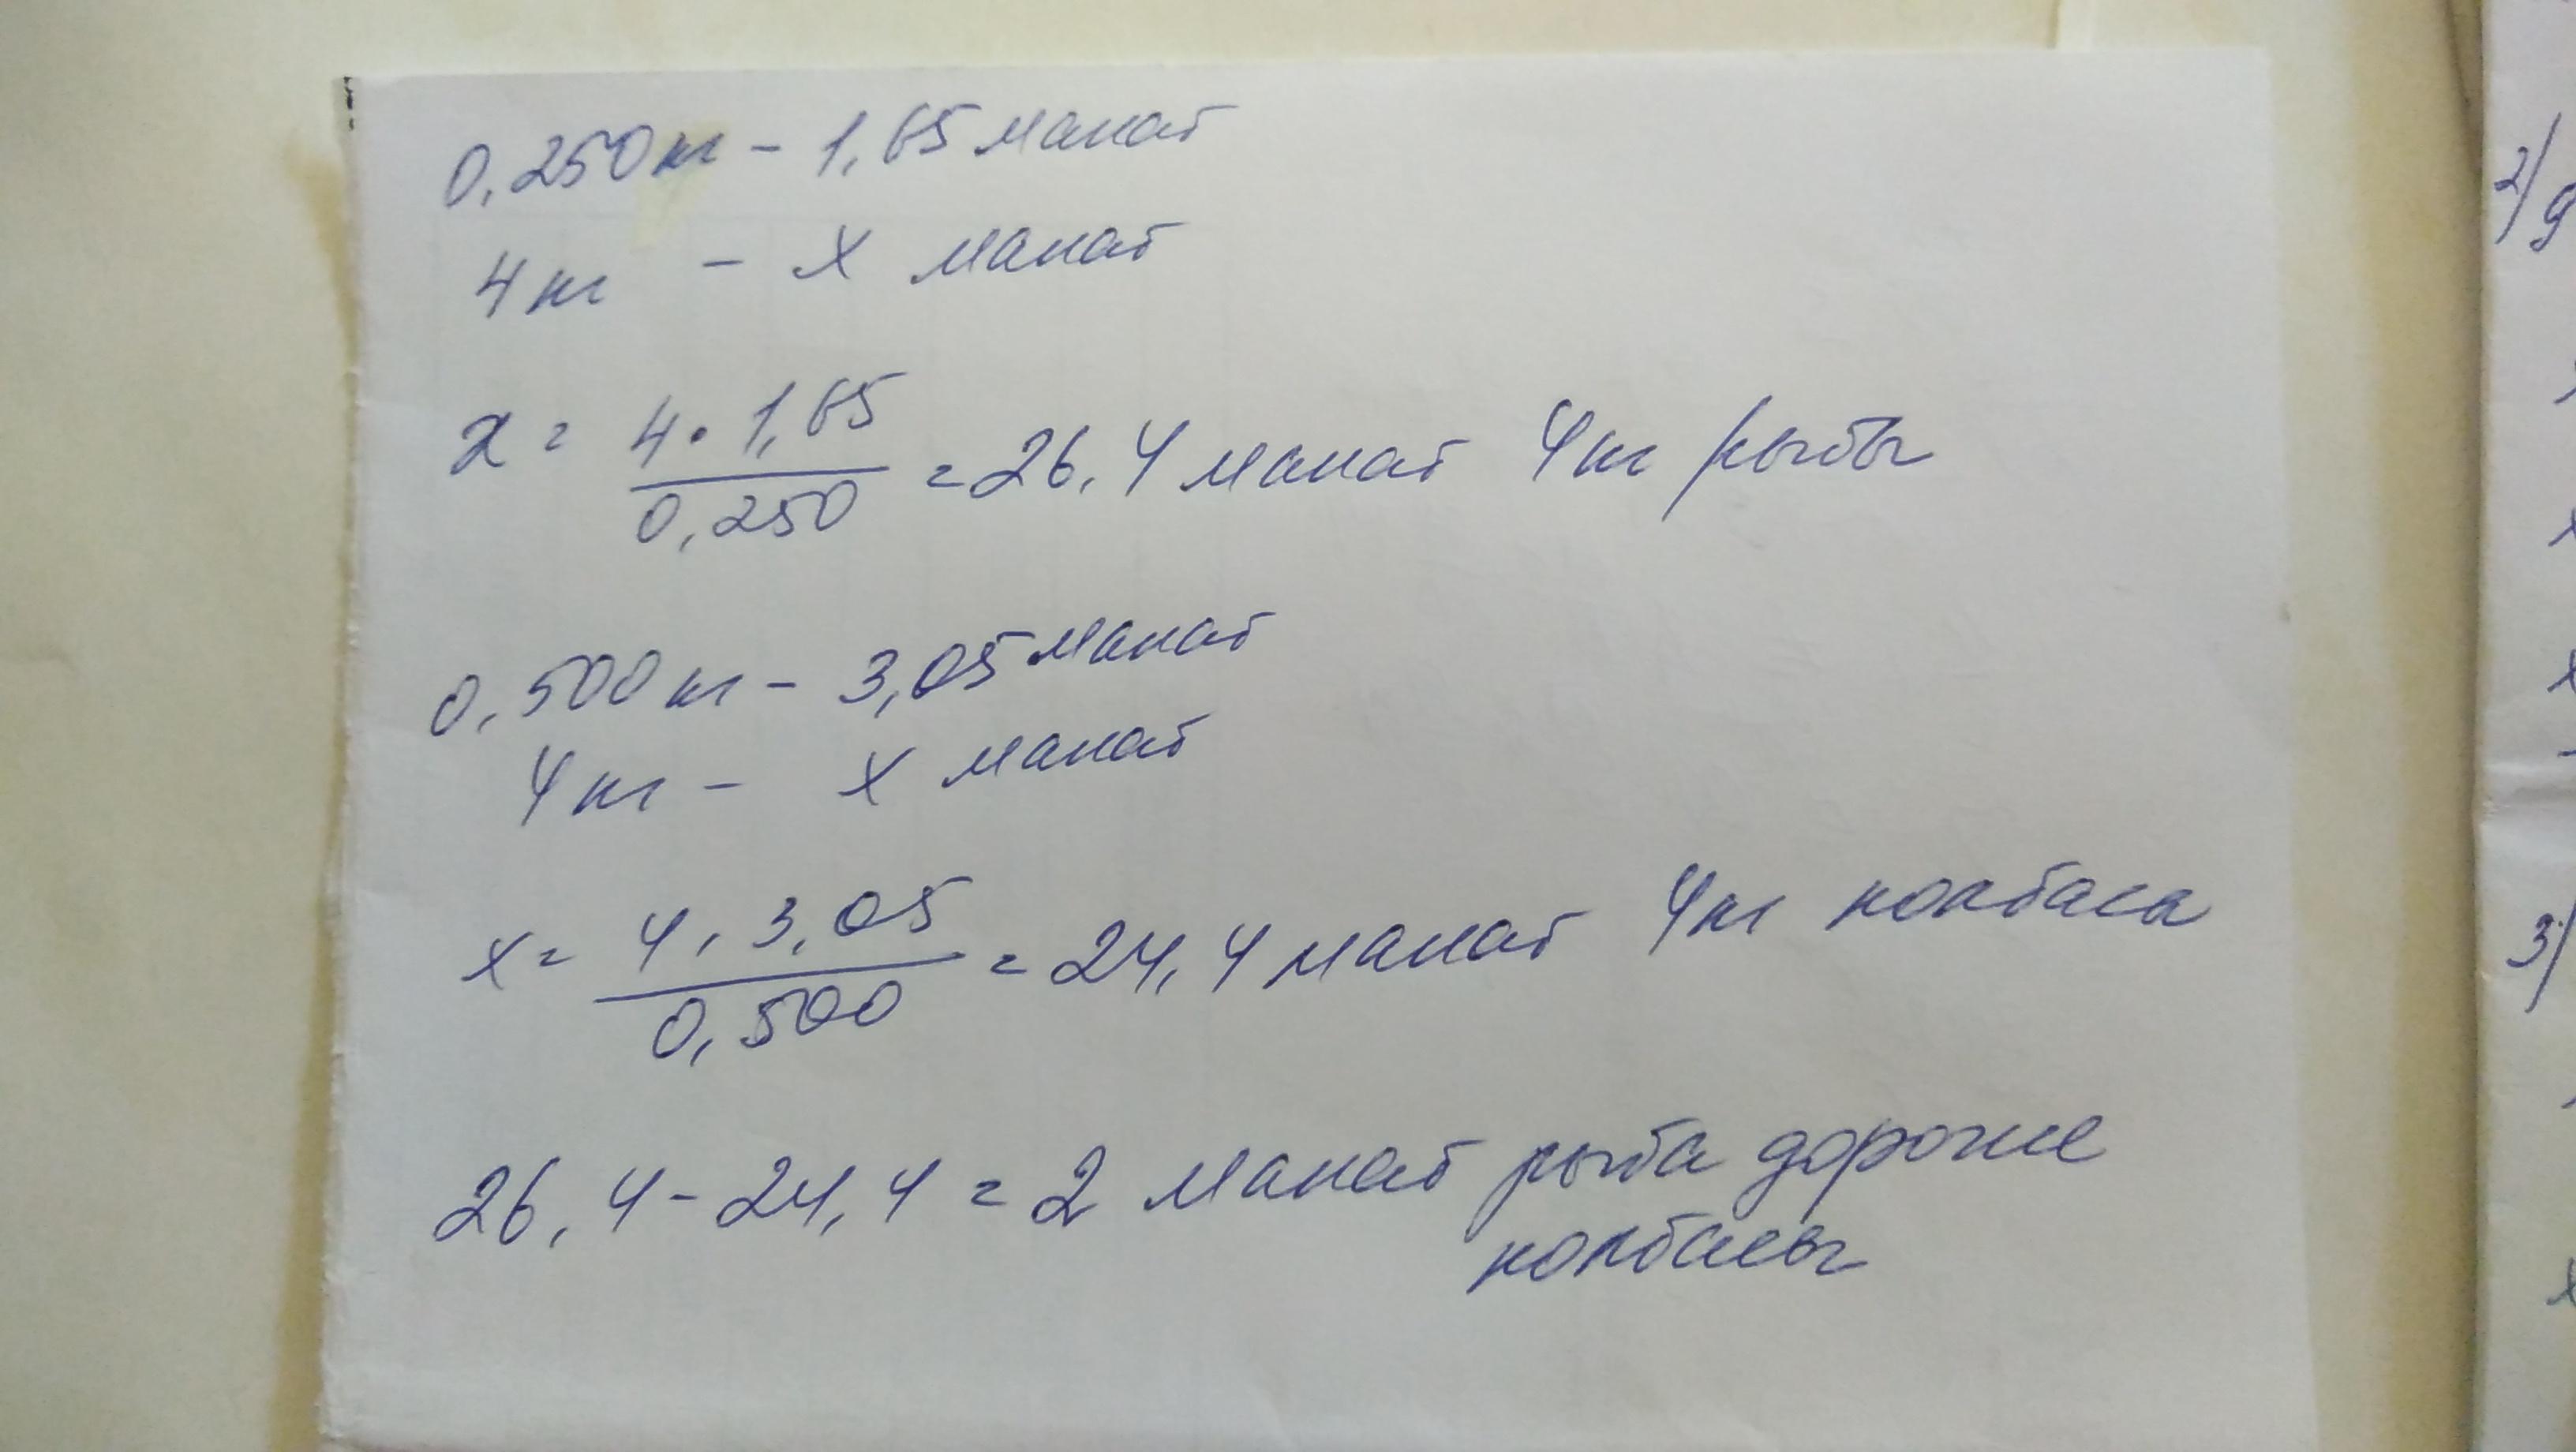 0,250 кг - 1,65 манат
4 кг - х манат
x = 4 · 1,65 / 0,250 = 26,4 манат 4 кг рыбы
0,500 кг - 3,05 манат
4 кг - х манат
x = 4 · 3,05 / 0,500 = 24,4 манат 4 кг колбаса
26,4 - 24,4 = 2 манат рыба дороже
колбасы
2)
3)